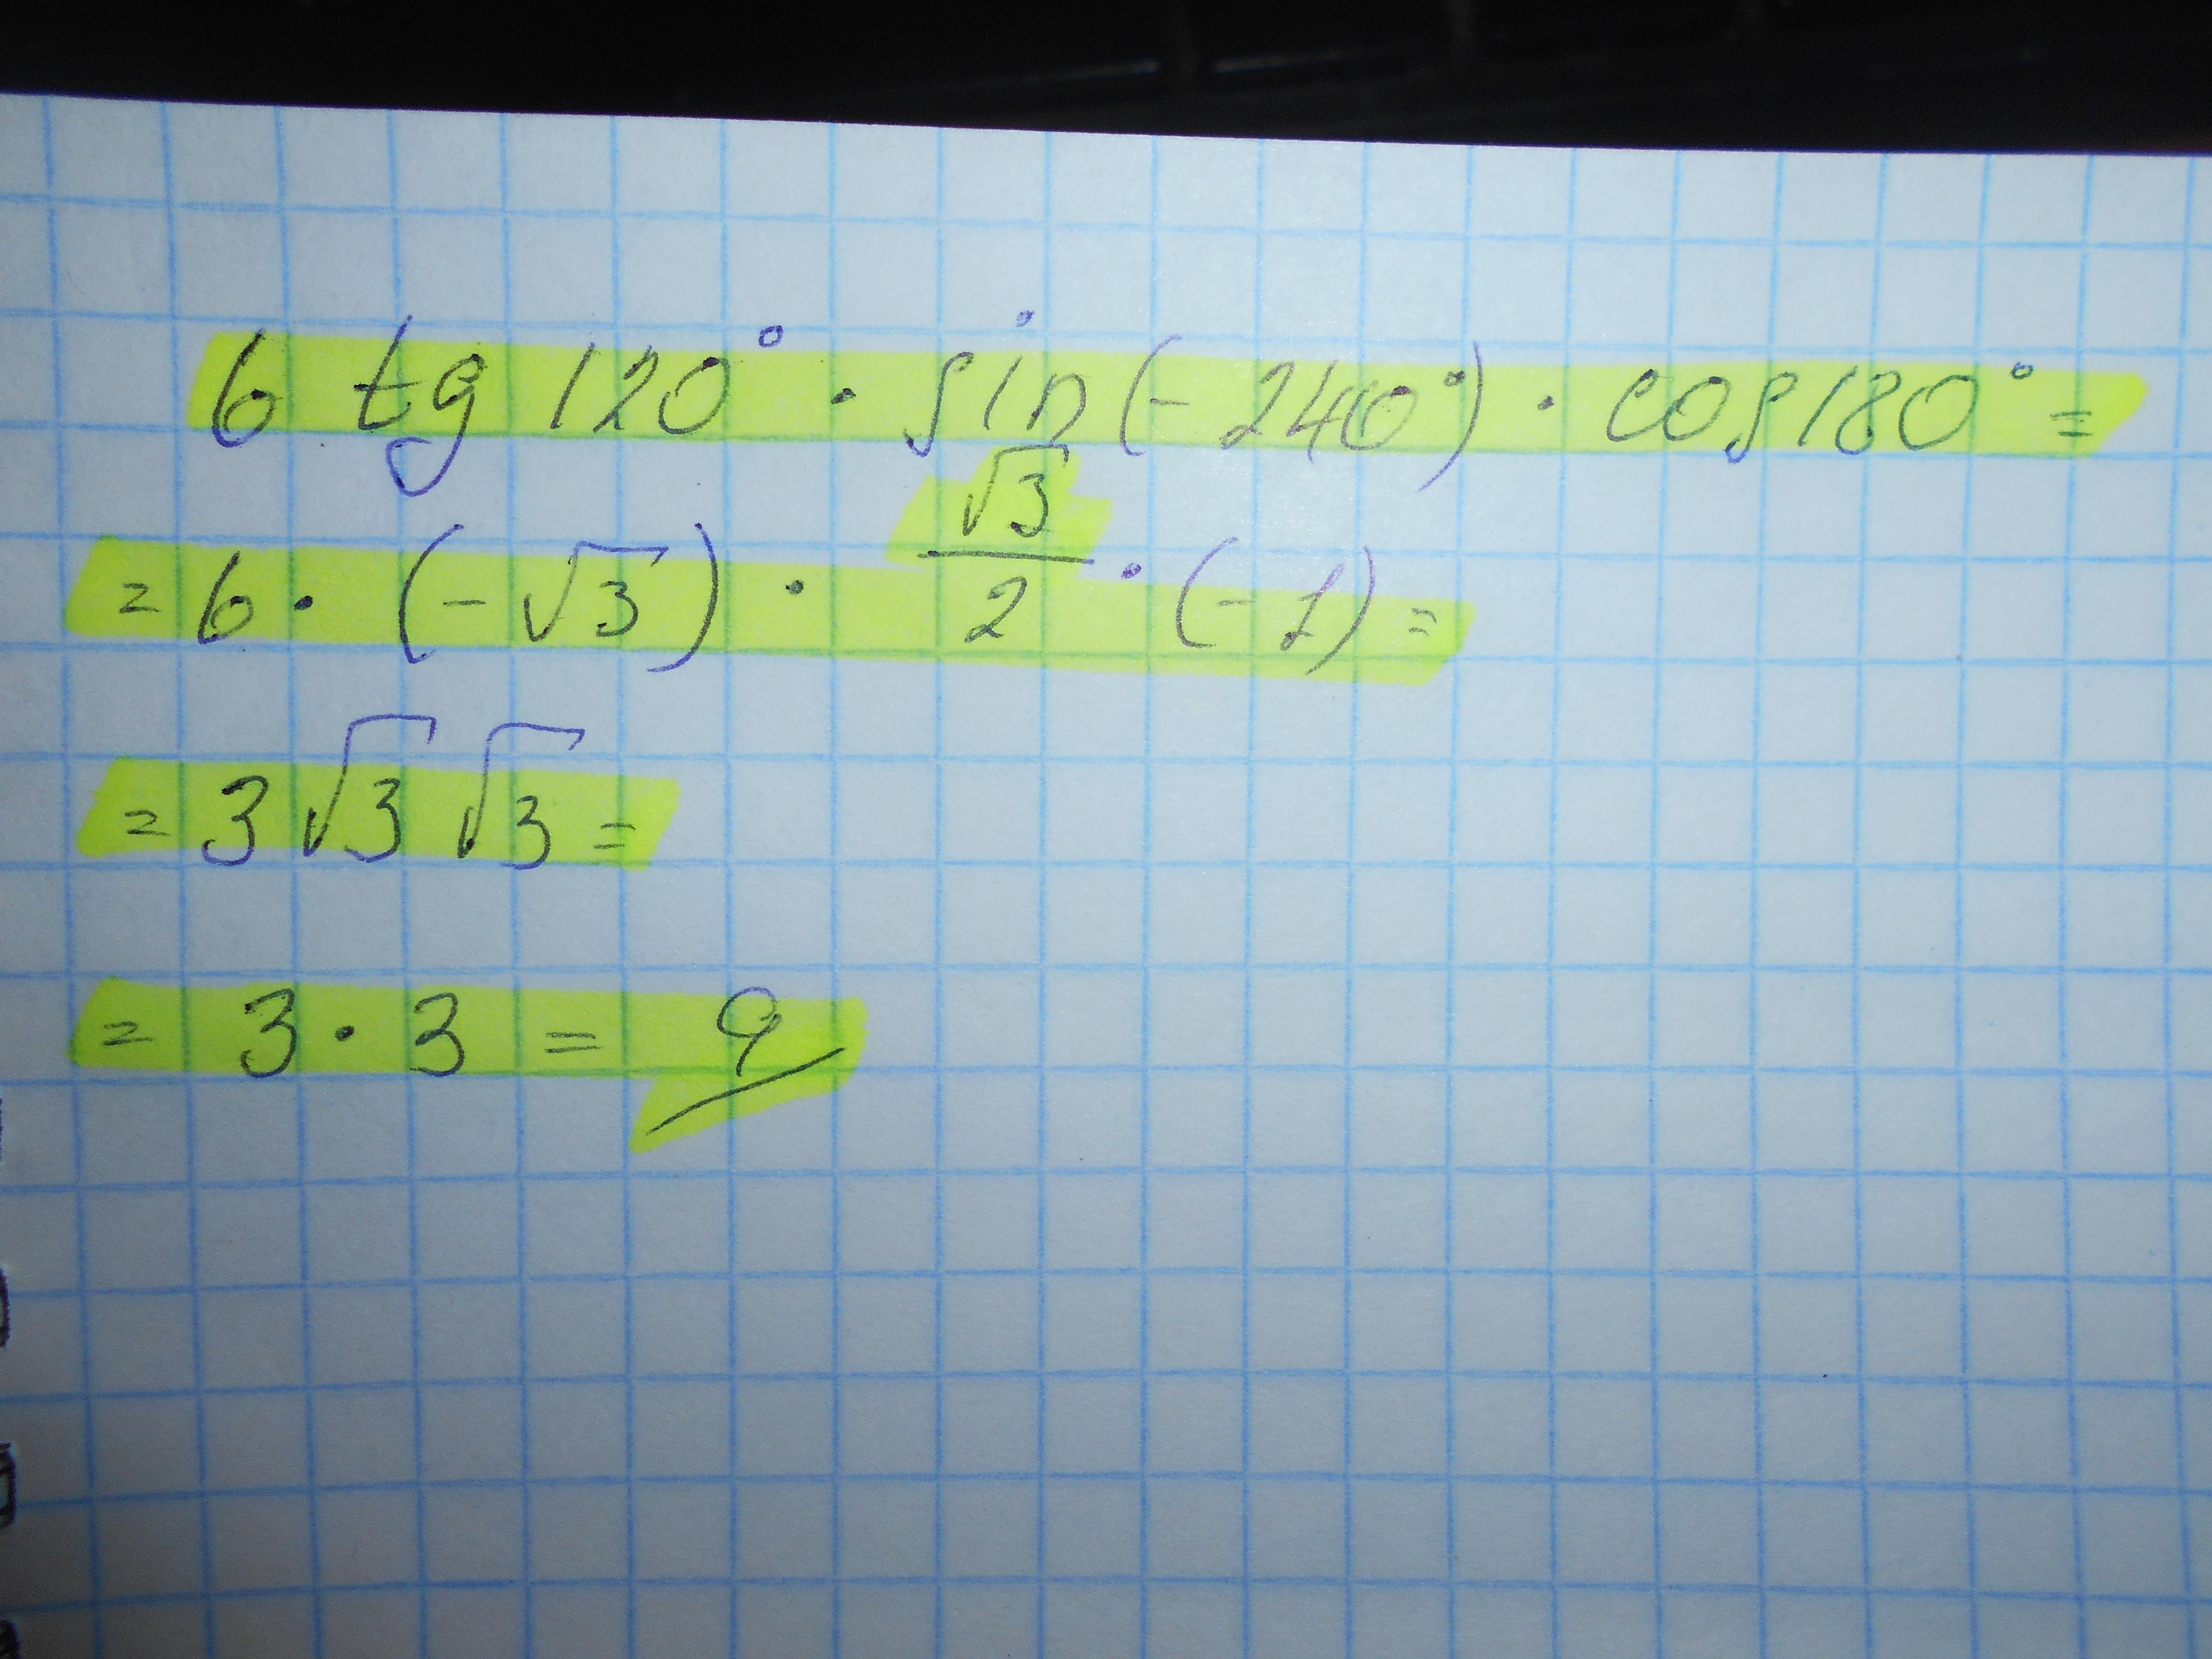 6 tg 120° · sin(-240°) · cos180° =
= 6 · (-√3) · √3/2 · (-1) =
= 3√3√3 =
= 3 · 3 = 9